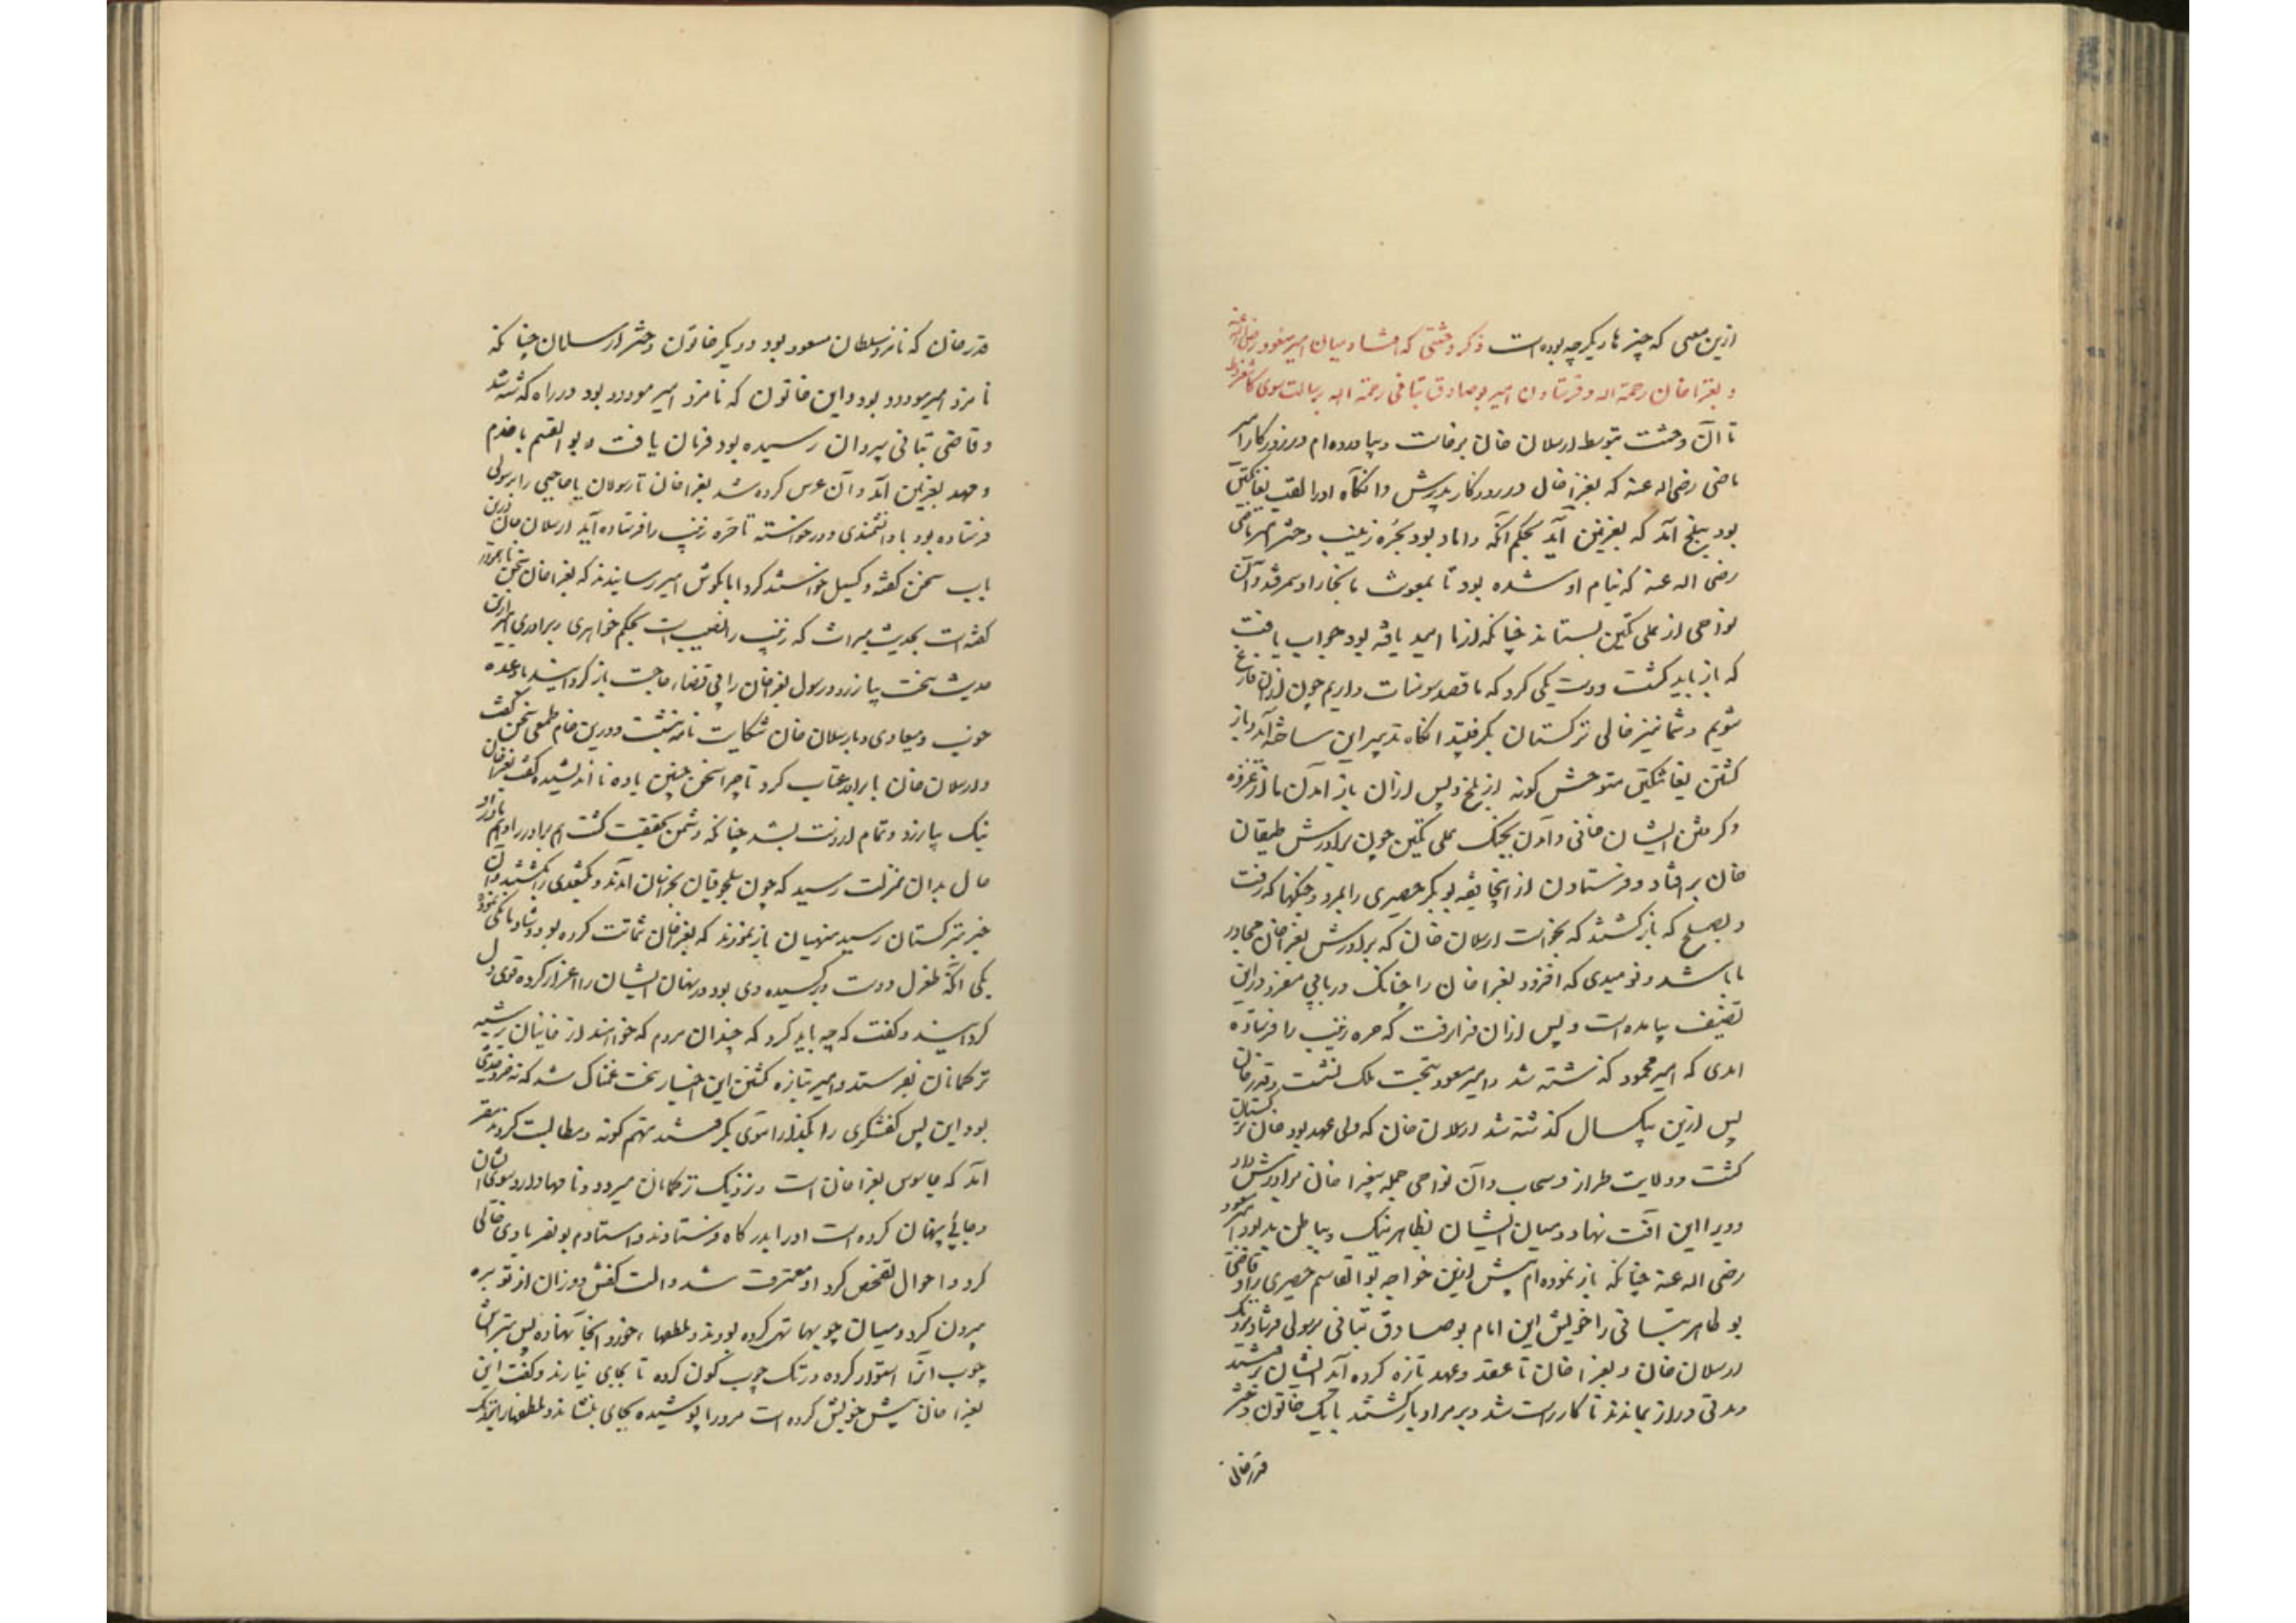 ازین معنی که چیزها دیگرچه بوده است ذکر وحشتی که افتاد میان امیر مسعود رضی الله عنه
و بغراخان رحمة اله و فرستادن امیر بوصادق تبانی رحمة اله برسالت سوی کاشغر و
تا آن وحشت بتوسط ارسلان خان برخاست بیاورده ام در روزکار امیر
ماضی رضی اله عنه که بغراخان در روزکار پدرش وانکاه اورا لقب یغانتکین
بود ببلخ آمد که بغزنین آید بحکم آنکه داماد بود بحره زینب دختر امیر ماضی
رضی اله عنه که بنام او شده بود تا بمعونت ما بخارا و سمرقند و آن
نواحی از علی تکین بستاند چنانکه از ما امید یافته بود جواب یافت
که باز باید کشت و دست یکی کرد که ما قصد سومنات داریم چون از آن فارغ
شویم و شما نیز خانی ترکستان بکرفتید انکاه تدبیر این ساخته آید و باز
کشتن یغانتکین متوحش کونه از بلخ و پس ازان باز آمدن ما از غزو
و کرفتن ایشان خانی و آمدن بجنک علی تکین چون برادرش طیغان
خان برافتاد و فرستادن از انجا فقیه بوبکر حصیری را بمرو و جنکها که رفت
و بصلح که بازکشتند که نخواست ارسلان خان که برادرش بغراخان مجاور
ما باشد و نومیدی که افزود بغراخان را چنانک در بابی مفرد درین
تصنیف بیامده است و پس ازان فرارفت که حره زینب را فرستاده
امدی که امیر محمود کذشته شد و امیر مسعود بتخت ملک نشست و قدرخان
پس ازین بیکسال کذشته شد ارسلان خان که ولی عهد بود خان ترکستان
کشت و ولایت طراز و سبحاب و آن نواحی جمله بغراخان برادرش داد
و ویرا این لقب نهاد و میان ایشان بظاهر نیک و بباطن بد بود امیر مسعود
رضی اله عنه چنانکه باز نموده ام پیش ازین خواجه بوالقاسم حصیری را و قاضی
بوطاهر تبانی را خویش این امام بوصادق تبانی برسولی فرستاد نزدیک
ارسلان خان و بغراخان تا عقد و عهد تازه کرده آید ایشان برفتند
و مدتی دراز بماندند تا کار راست شد و بر مراد بازکشتند با یک خاتون دختر
قدرخان
قدرخان که نامزد سلطان مسعود بود و دیکر خاتون دختر ارسلان چنانکه
نامزد امیر مودود بود و این خاتون که نامزد امیر مودود بود در راه کذشته شد
و قاضی تبانی بپروان رسیده بود فرمان یافت و بوالقسم با خدم
و مهد بغزنین آمد و آن عرس کرده شد بغراخان تا رسولان با حاجبی را برسولی
فرستاده بود با دانشمندی و درخواسته تا حره زینب را فرستاده آید ارسلان خان درین
باب سخن کفته و کسیل خواستند کرد اما بکوش امیر رسانیدند که بغراخان سخن ناهموار
کفته است بحدیث میراث که زینب را نصیب است بحکم خواهری و برادری امیر ازین
حدیث سخت بیازرد و رسول بغراخان را بی قضاء حاجت باز کردانید با وعده
خوب و میعادی و بارسلان خان شکایت نامه نبشت و درین خام طمعی سخن کفت
و ارسلان خان با برادر عتاب کرد تا چرا سخن چنین یاوه نا اندیشیده کفت بغراخان
نیک بیازرد و تمام از دست بشد چنانکه دشمن بحقیقت کشت هم برادر را و هم ما را و
حال بدان منزلت رسید که چون سلجوقیان بخراسان آمدند و بکتغدی را بشکستند و آن
خبر بترکستان رسید منهیان باز نمودند که بغراخان شماتت کرده بود و شادمانکی نموده
یکی آنکه طغرل دوست و برکشیده وی بود در نهان ایشان را اغرا کرده قوی دل
کردانیده و کفت که چه باید کرد که چندان مردم که خواهند از خانیان بر شبیه
ترکمانان بفرستد و امیر بتازه کشتن این اخبار سخت غمناک شد که نه خرد حدیثی
بود این پس کفشکری را بکذر آموی بکرفتند متهم کونه و مطالبت کردند مقر
آمد که جاسوس بغراخان است و نزدیک ترکمانان میرود و نامها دارد سوی ایشان
و جائی پنهان کرده است اورا بدرکاه فرستادند و استادم بونصر با وی خالی
کرد و احوال تفحص کرد او معترف شد و الت کفش دوزان از توبره
بیرون کرد و میان چوبها تهی کرده بودند و ملطفها خرد انجا نهاده پس بتراش
چوب آنرا استوار کرده و رنک چوب کون کرده تا بجای نیارند و کفت این
بغراخان پیش خویش کرده است مرد را پوشیده بجای بنشاند و ملطفها را نزدیک